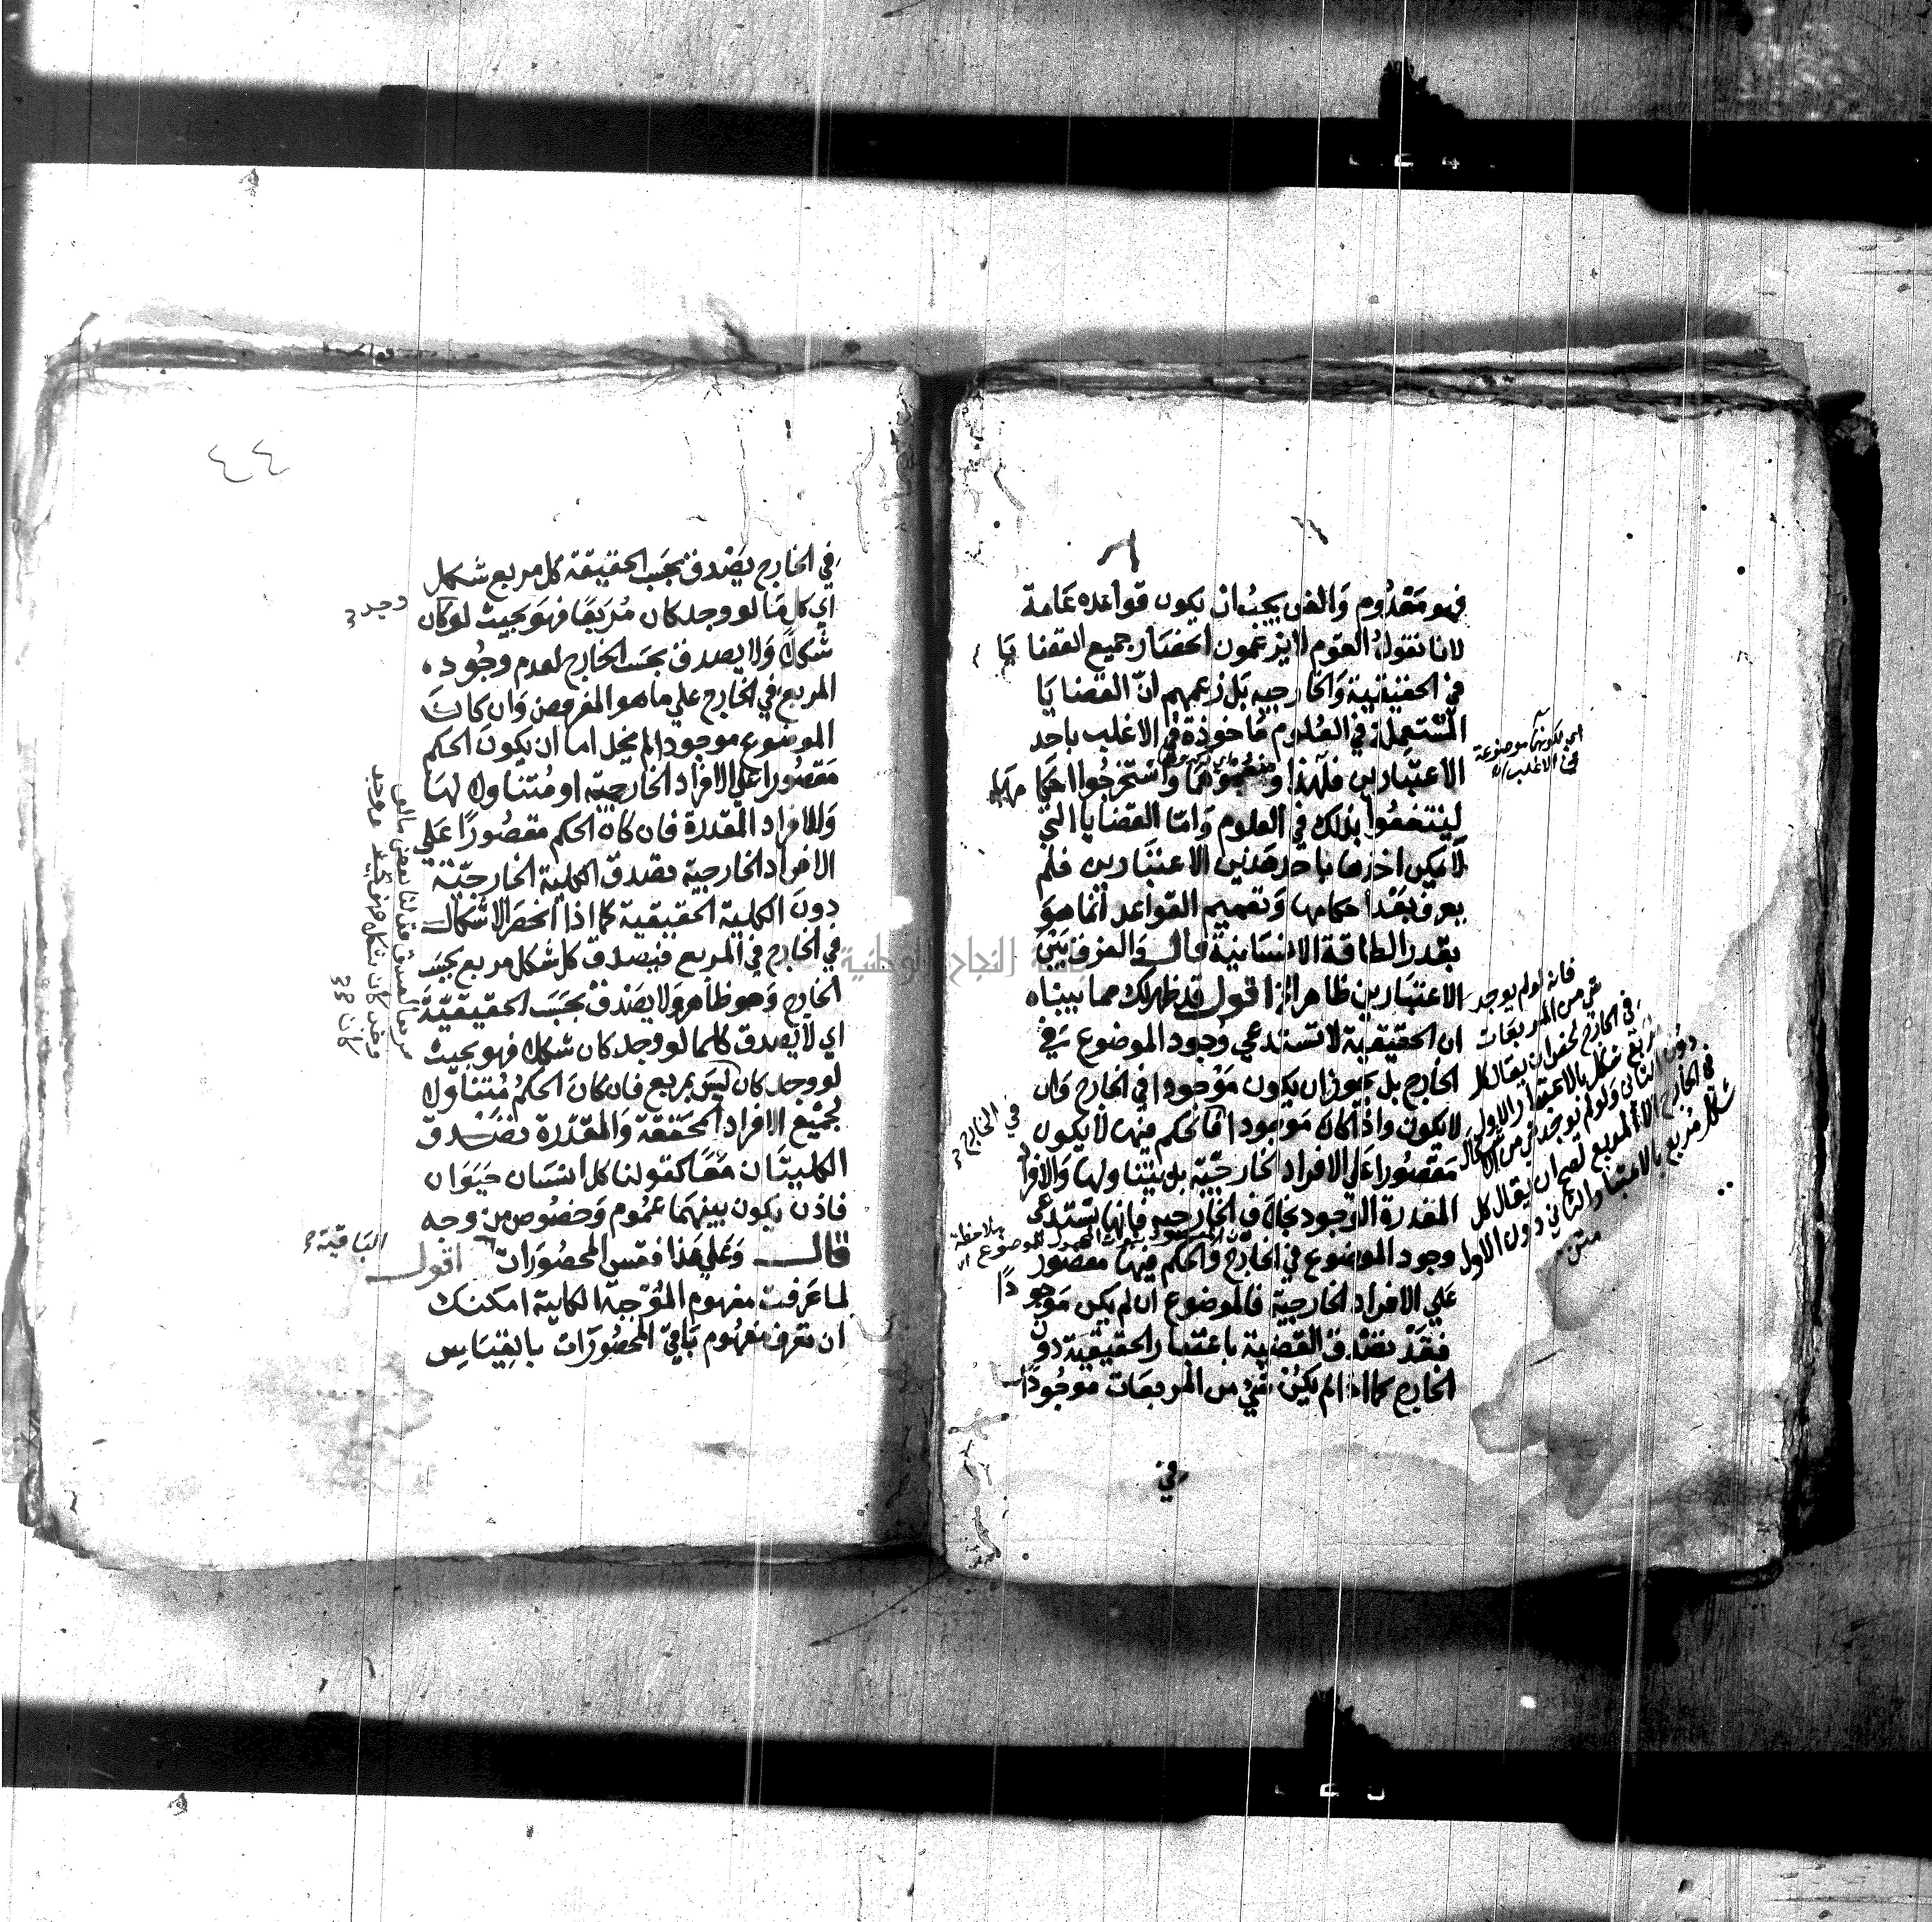 فهو معدوم والفن يجب ان يكون قواعده عامة
لانا نقول القوم لا يزعمون انحصار جميع القضايا
في الحقيقية والخارجيه بل زعمهم ان القضايا
المستعملة في العلوم ماخوذة في الاغلب باحد
الاعتبارين فلهذا وضعوهما واستخرجوا احكامهما
لينتفعوا بذلك في العلوم واما القضايا التي
لا يمكن اخذها باحد هذين الاعتبارين فلم
يعرف بعد احكامها وتعميم القواعد انما هو
بقدر الطاقة الانسانية قال والفرق بين
الاعتبارين ظاهر الخ اقول قد ظهر لك مما بيناه
ان الحقيقية لا تستدعي وجود الموضوع في
الخارج بل يجوز ان يكون موجودا في الخارج وان
لا يكون واذا كان موجودا فالحكم فيها لا يكون
مقصورا على الافراد الخارجية بل يتناولها والافراد
المقدرة الوجود بخلاف الخارجيه فانها تستدعى
وجود الموضوع في الخارج والحكم فيها مقصور
علي الافراد الخارجية فالموضوع ان لم يكن موجودا
فقد تصدق القضية باعتبار الحقيقية دون
الخارج كما اذا لم يكن شئ من المربعات موجودا
في
اى بكونها موضوعة
في الاغلب
فانه لو لم يوجد
شي من المربعات
في الخارج لصح ان يقال كل
مربع شكل بالاعتبار الاول
دون الثانى ولو لم يوجد شئ من الاشكال
في الخارج الا المربع لصح ان يقال كل
شكل مربع بالاعتبار الثاني دون الاول
متن
في الخارج
٤٤
في الخارج يصدق بحسب الحقيقة كل مربع شكل
اي كل ما لو وجد كان مربعا فهو بحيث لو كان
وجد
شكلا ولا يصدق بحسب الخارج لعدم وجود
المربع في الخارج علي ما هو المفروض وان كان
الموضوع موجودا لم يخل اما ان يكون الحكم
مقصورا علي الافراد الخارجية او متناولا لها
وللافراد المقدرة فان كان الحكم مقصورا علي
الافراد الخارجية تصدق الكلية الخارجية
دون الكلية الحقيقية كما اذا انحصر الاشكال
في الخارج في المربع فيصدق كل شكل مربع بحسب
الخارج وهو ظاهر ولا يصدق بحسب الحقيقية
اي لا يصدق كلما لو وجد كان شكلا فهو بحيث
لو وجد كان ليس بمربع فان كان الحكم متناولا
لجميع الافراد المحققة والمقدرة تصدق
الكليتان معا كقولنا كل انسان حيوان
فاذن يكون بينهما عموم وخصوص من وجه
قال وعلي هذا فقس المحصورات اقول
الباقية
لما عرفت مفهوم الموجبة الكلية امكنك
ان تعرف مفهوم باقي المحصورات بالقياس
جامعة النجاح الوطنية